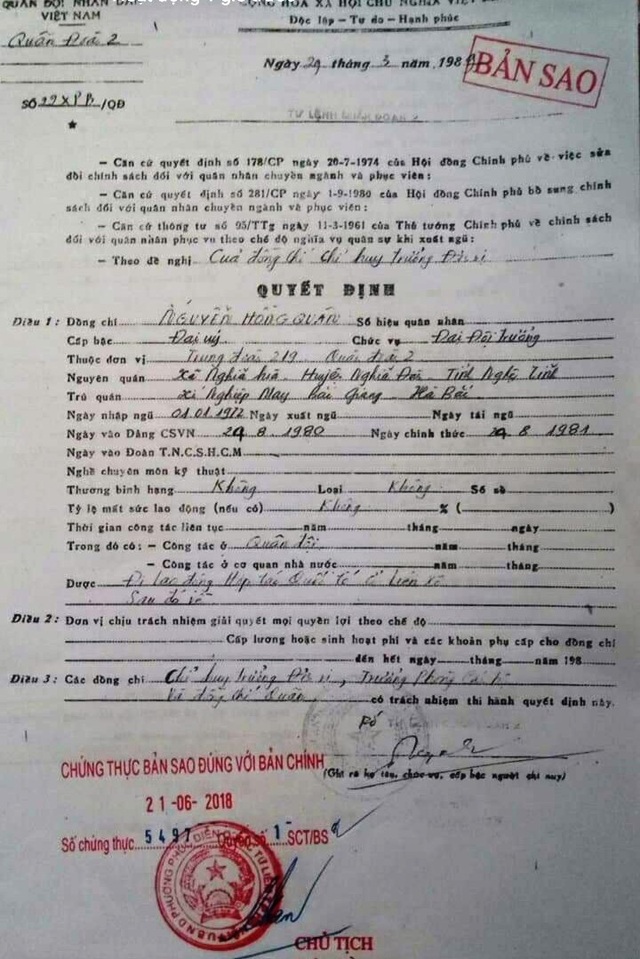 QUÂN ĐỘI NHÂN DÂN
VIỆT NAM
Quân Đoàn 2
SỐ 22XPB/QĐ
CỘNG HÒA XÃ HỘI CHỦ NGHĨA VIỆT
Độc lập - Tự do - Hạnh phúc
Ngày 29 tháng 3 năm 198
BẢN SAO
TƯ LỆNH QUÂN ĐOÀN 2
- Căn cứ quyết định số 178/CP ngày 20-7-1974 của Hội đồng Chính phủ về việc sửa
đổi chính sách đối với quân nhân chuyên ngành và phục viên;
- Căn cứ quyết định số 281/CP ngày 1-9-1980 của Hội đồng Chính phủ bổ sung chính
sách đối với quân nhân chuyên ngành và phục viên;
- Căn cứ thông tư số 95/TTg ngày 11-3-1961 của Thủ tướng Chính phủ về chính sách
đối với quân nhân phục vụ theo chế độ nghĩa vụ quân sự khi xuất ngũ;
- Theo đề nghị Của đồng chí chỉ huy trưởng Đơn vị
QUYẾT ĐỊNH
Điều 1: Đồng chí NGUYỄN HỒNG QUÂN Số hiệu quân nhân
Cấp bậc Đại uý Chức vụ Đại Đội Trưởng
Thuộc đơn vị Trung đoàn 219 Quân đoàn 2
Nguyên quán Xã Nghĩa hoà Huyện Nghĩa Đàn Tỉnh Nghệ Tĩnh
Trú quán Xí Nghiệp May Bắc Giang Hà Bắc
Ngày nhập ngũ 01.01.1972 Ngày xuất ngũ Ngày tái ngũ
Ngày vào Đảng CSVN 29 8 1980 Ngày chính thức 29 8 1981
Ngày vào Đoàn T.N.C.S.H.C.M
Nghề chuyên môn kỹ thuật
Thương binh hạng Không Loại Không Số sổ
Tỷ lệ mất sức lao động (nếu có) Không % ( )
Thời gian công tác liên tục năm tháng ngày
Trong đó có: - Công tác ở Quân đội năm tháng
- Công tác ở cơ quan nhà nước năm tháng
Được Đi lao động Hợp tác Quốc tế ở Liên Xô
Sau đó về
Điều 2: Đơn vị chịu trách nhiệm giải quyết mọi quyền lợi theo chế độ
Cấp lương hoặc sinh hoạt phí và các khoản phụ cấp cho đồng chí
đến hết ngày tháng năm 198
Điều 3: Các đồng chí Chỉ huy trưởng Đơn vị, Trưởng Phòng Cán bộ
Và đồng chí Quân có trách nhiệm thi hành quyết định này.
(Ghi rõ họ tên, chức vụ, cấp bậc người chỉ huy)
CHỨNG THỰC BẢN SAO ĐÚNG VỚI BẢN CHÍNH
21-06-2018
Số chứng thực 5497 Quyển số 1 SCT/BS
CHỦ TỊCH